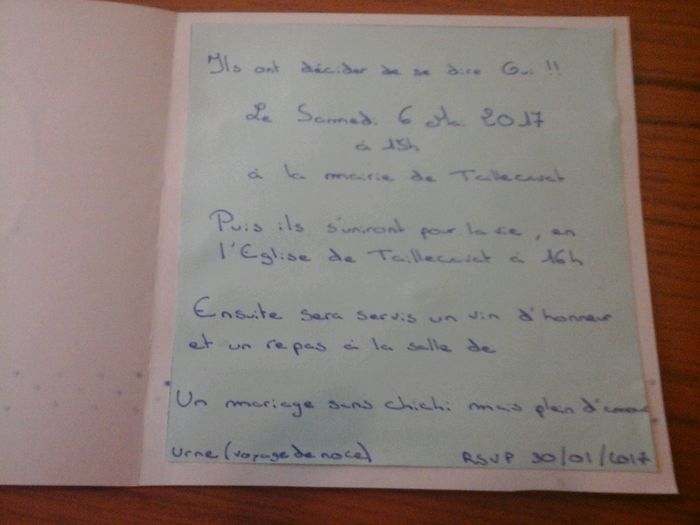 Ils ont décider de se dire Oui !!
Le Samedi 6 Mai 2017
à 15h
à la mairie de Taillecavat
Puis ils s'uniront pour la vie, en
l'Eglise de Taillecavat à 16h
Ensuite sera servis un vin d'honneur
et un repas à la salle de
Un mariage sans chichi mais plen d'amour
Urne (voyage de noce)
RSVP 30/01/2017